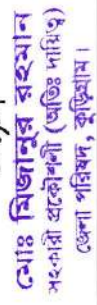 মোঃ মিজানুর রহমান
সহকারী প্রকৌশলী (অতিঃ দায়িত্ব)
জেলা পরিষদ, কুড়িগ্রাম।